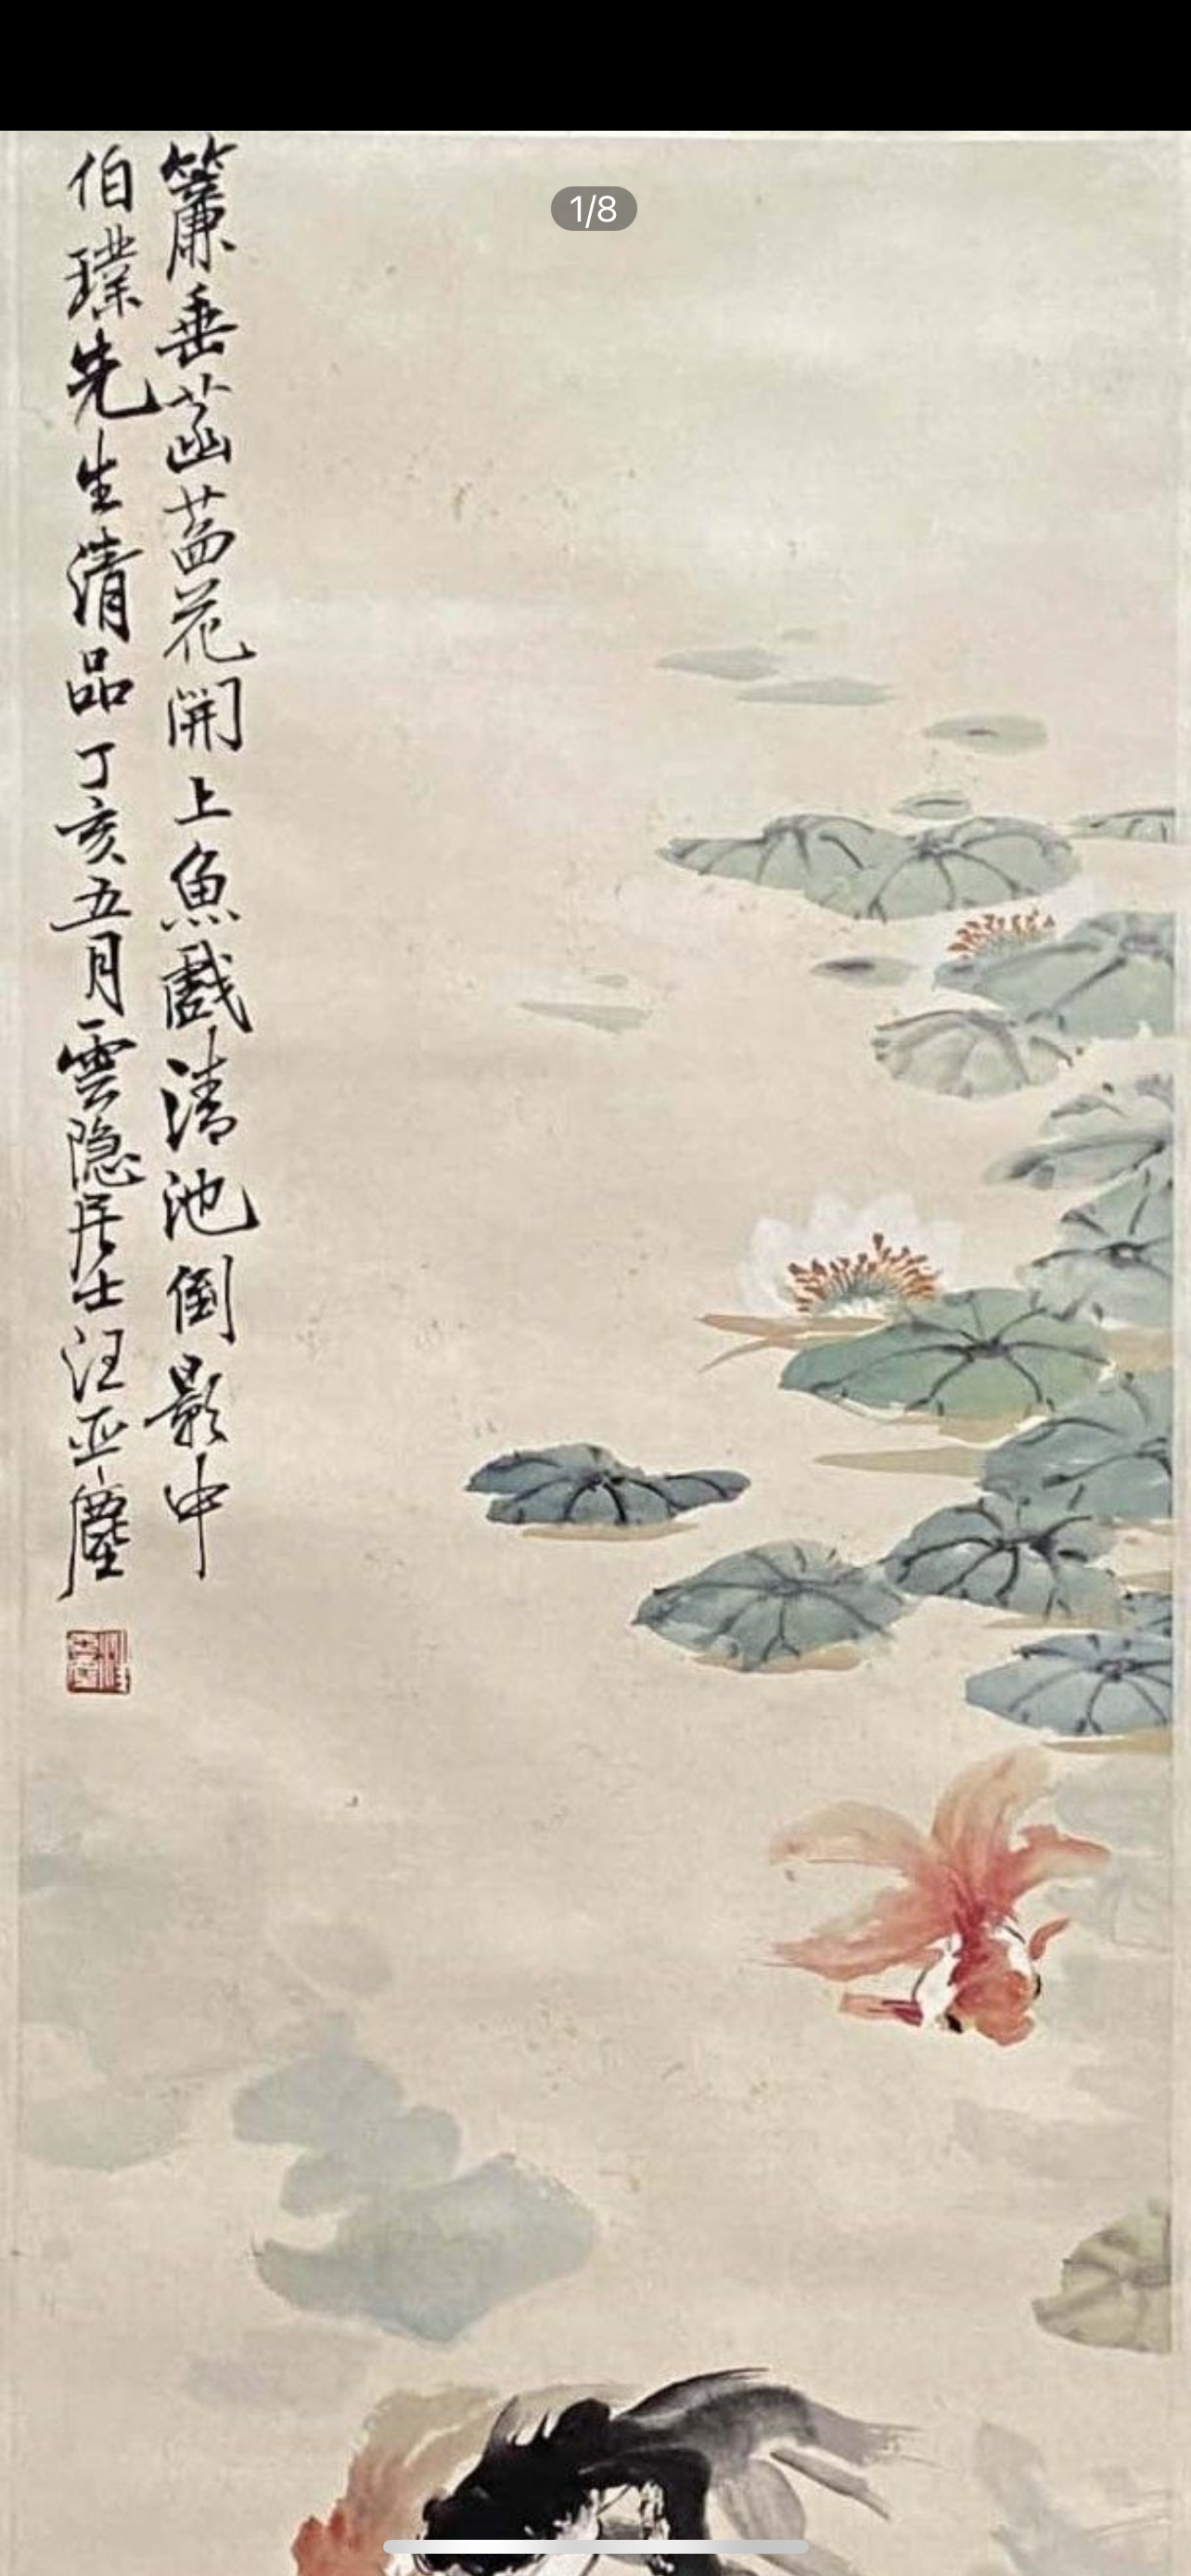 1/8
簾垂菡萏花開上魚戲清池倒影中
伯璞先生清品丁亥五月雲隐居士汪亚塵